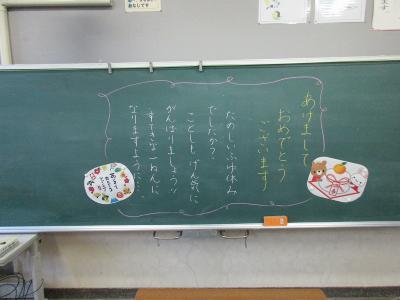 あけまして
おめでとう
ございます
たのしいふゆ休み
でしたか?
ことしも、げん気に
がんばりましょう!!
すてきな一ねんに
なりますように